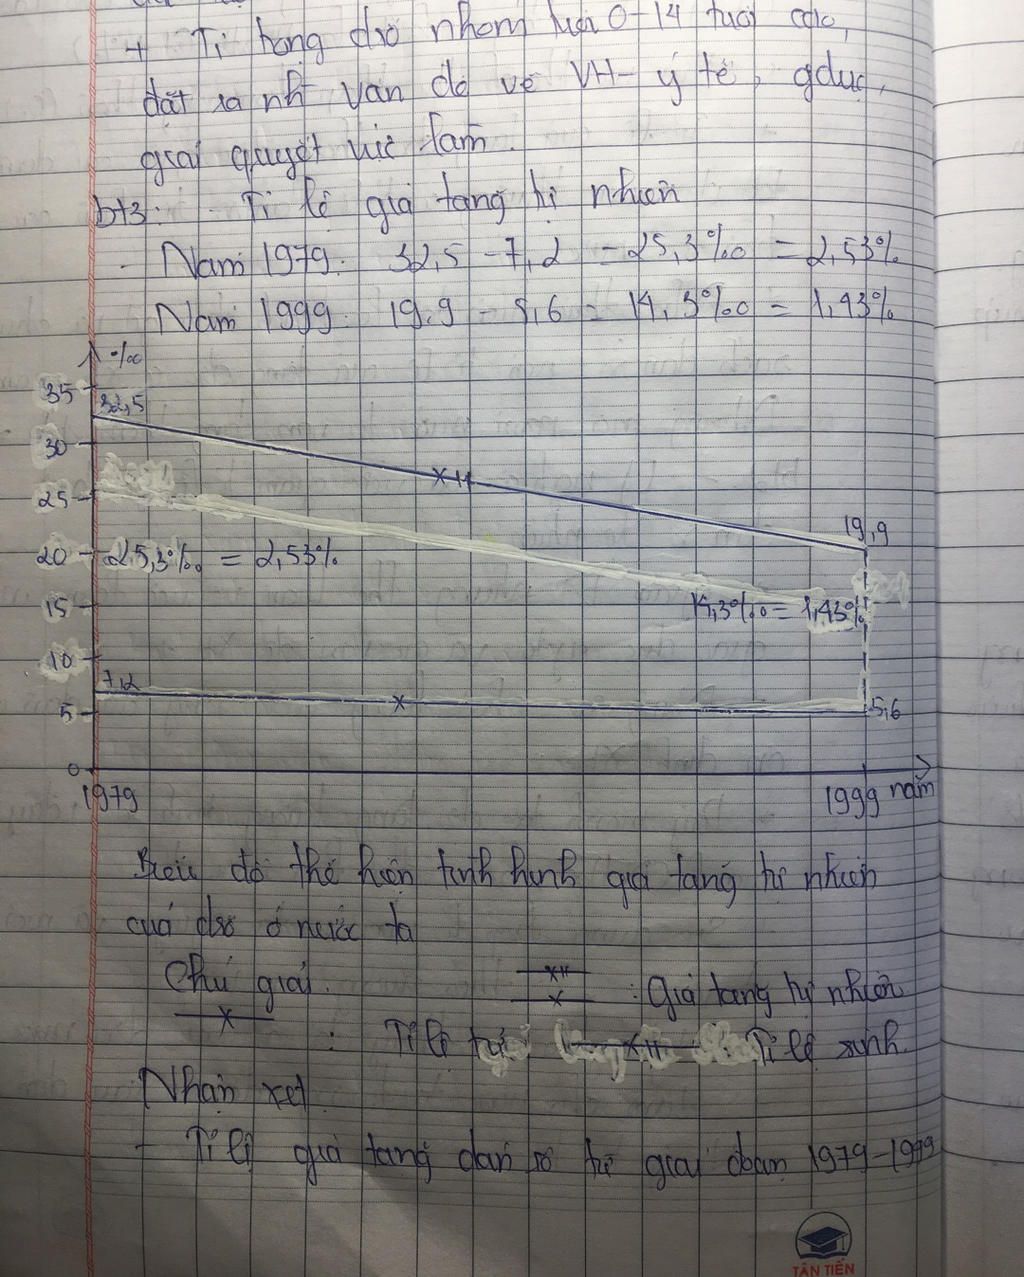 + Tỉ trọng dsố nhóm tuổi 0-14 tuổi cao,
đặt ra nh vấn đề về VH - y tế, gdục,
giải quyết việc làm.
bt3: Tỉ lệ gia tăng tự nhiên
- Năm 1979: 32,5 - 7,2 = 25,3‰ = 2,53%
Năm 1999: 19,9 - 5,6 = 14,3‰ = 1,43%
‰
35
32,5
30
25
19,9
20
25,3‰ = 2,53%
15
14,3‰ = 1,43%
10
7,2
5
5,6
0
1979
1999 năm
Biểu đồ thể hiện tình hình gia tăng tự nhiên
của dsố ở nước ta
Chú giải:
: Gia tăng tự nhiên
: Tỉ lệ tử
: Tỉ lệ sinh
Nhận xét
- Tỉ lệ gia tăng dân số từ giai đoạn 1979-1999
TÂN TIẾN